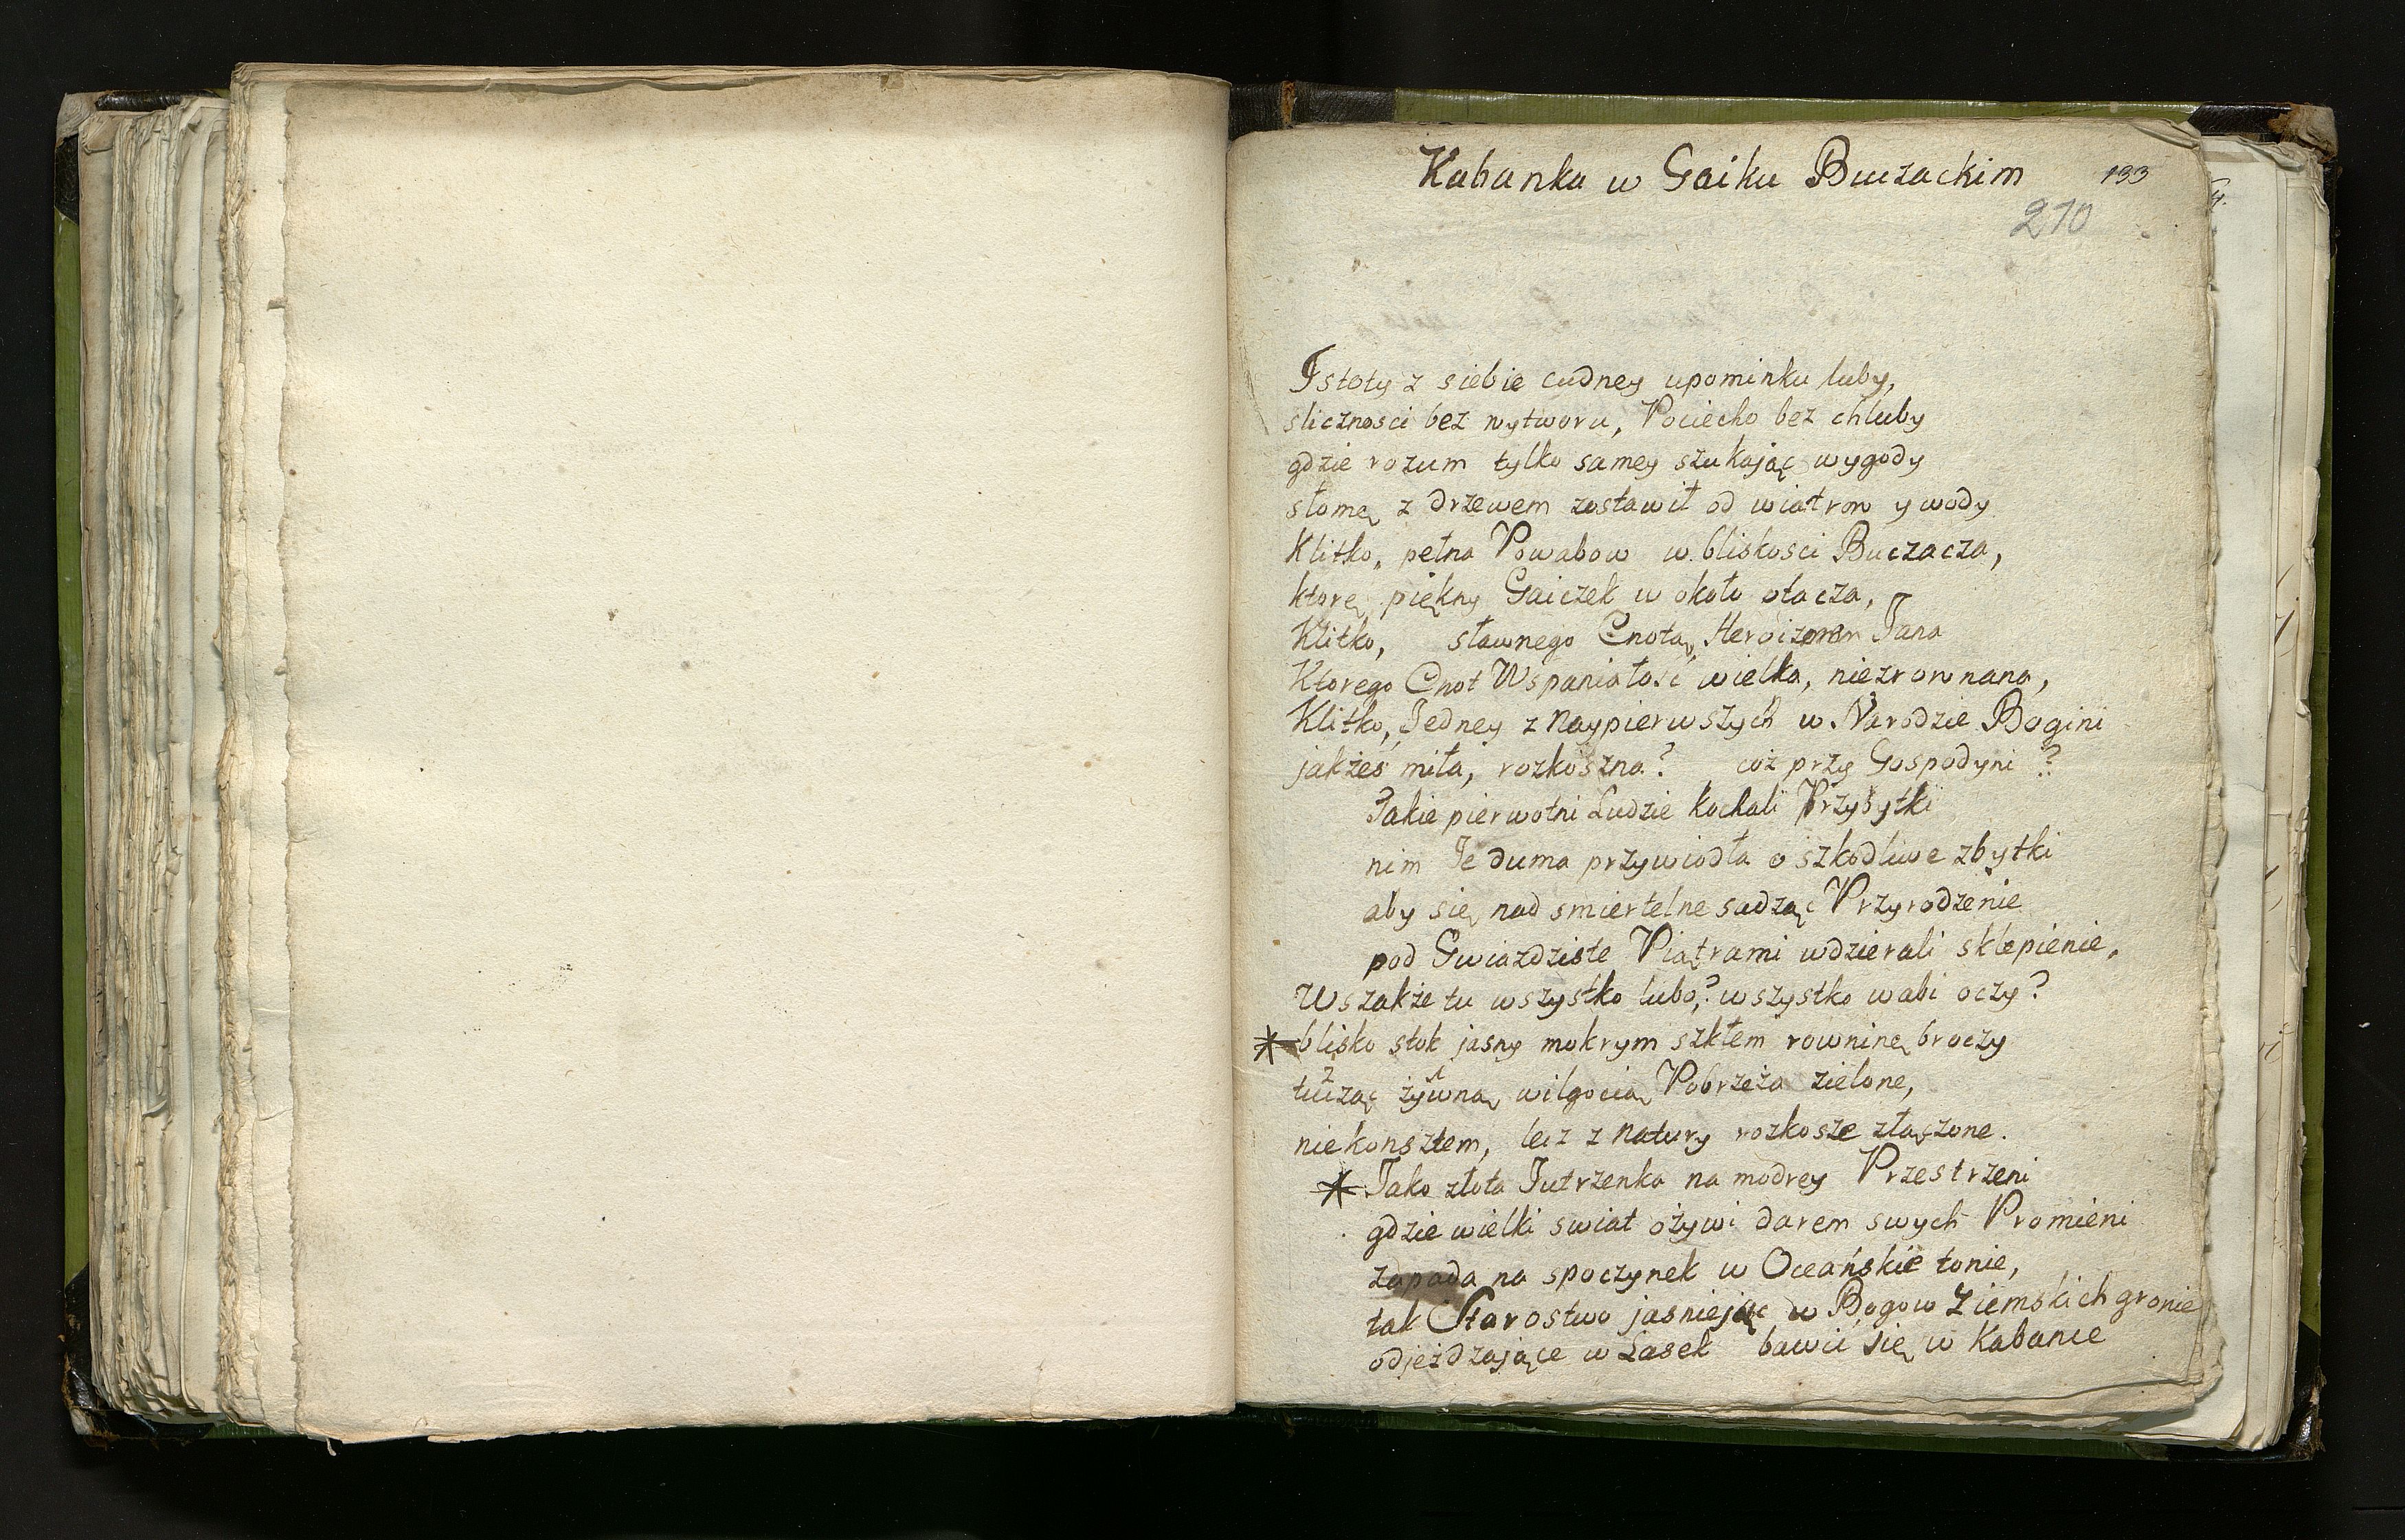 Kabanka w Gaiku Buczackim 133
210
Istoty z siebie cudney upominku luby,
slicznosci bez wytworu, Pociecho bez chluby
gdzie rozum tylko samey szukając wygody
słomę z drzewem zostawił od wiatrow y wody
Klitko, pełna Powabow w bliskosci Buczacza,
ktorę piękny Gaiczek w około otacza,
Klitko, sławnego Cnotą, Heroizmem Jana
Ktorego Cnot Wspaniałość wielka, niezrownana,
Klitko, Jedney z Naypierwszych w Narodzie Bogini
jakżeś miła, rozkoszna? coż przy Gospodyni?
Takie pierwotni Ludzie kochali Przybytki
nim Je duma przywiodła o szkodliwe zbytki
aby się nad smiertelne sadząc Przyrodzenie
pod Gwiazdziste Piątrami wdzierali sklepienie.
Wszakże tu wszystko lubo,? wszystko wabi oczy?
* blisko stok jasny mokrym szkłem rowninę broczy
tucząc żywną wilgocią Pobrzeża zielone,
nie konsztem, lecz z natury rozkosze złączone.
* Jako złota Jutrzenka na modrey Przestrzeni
gdzie wielki swiat ożywi darem swych Promieni
zapada na spoczynek w Oceańskie tonie,
tak Starostwo jasniejąc w Bogow Ziemskich gronie
odjeżdzające w Lasek bawić się w Kabanie